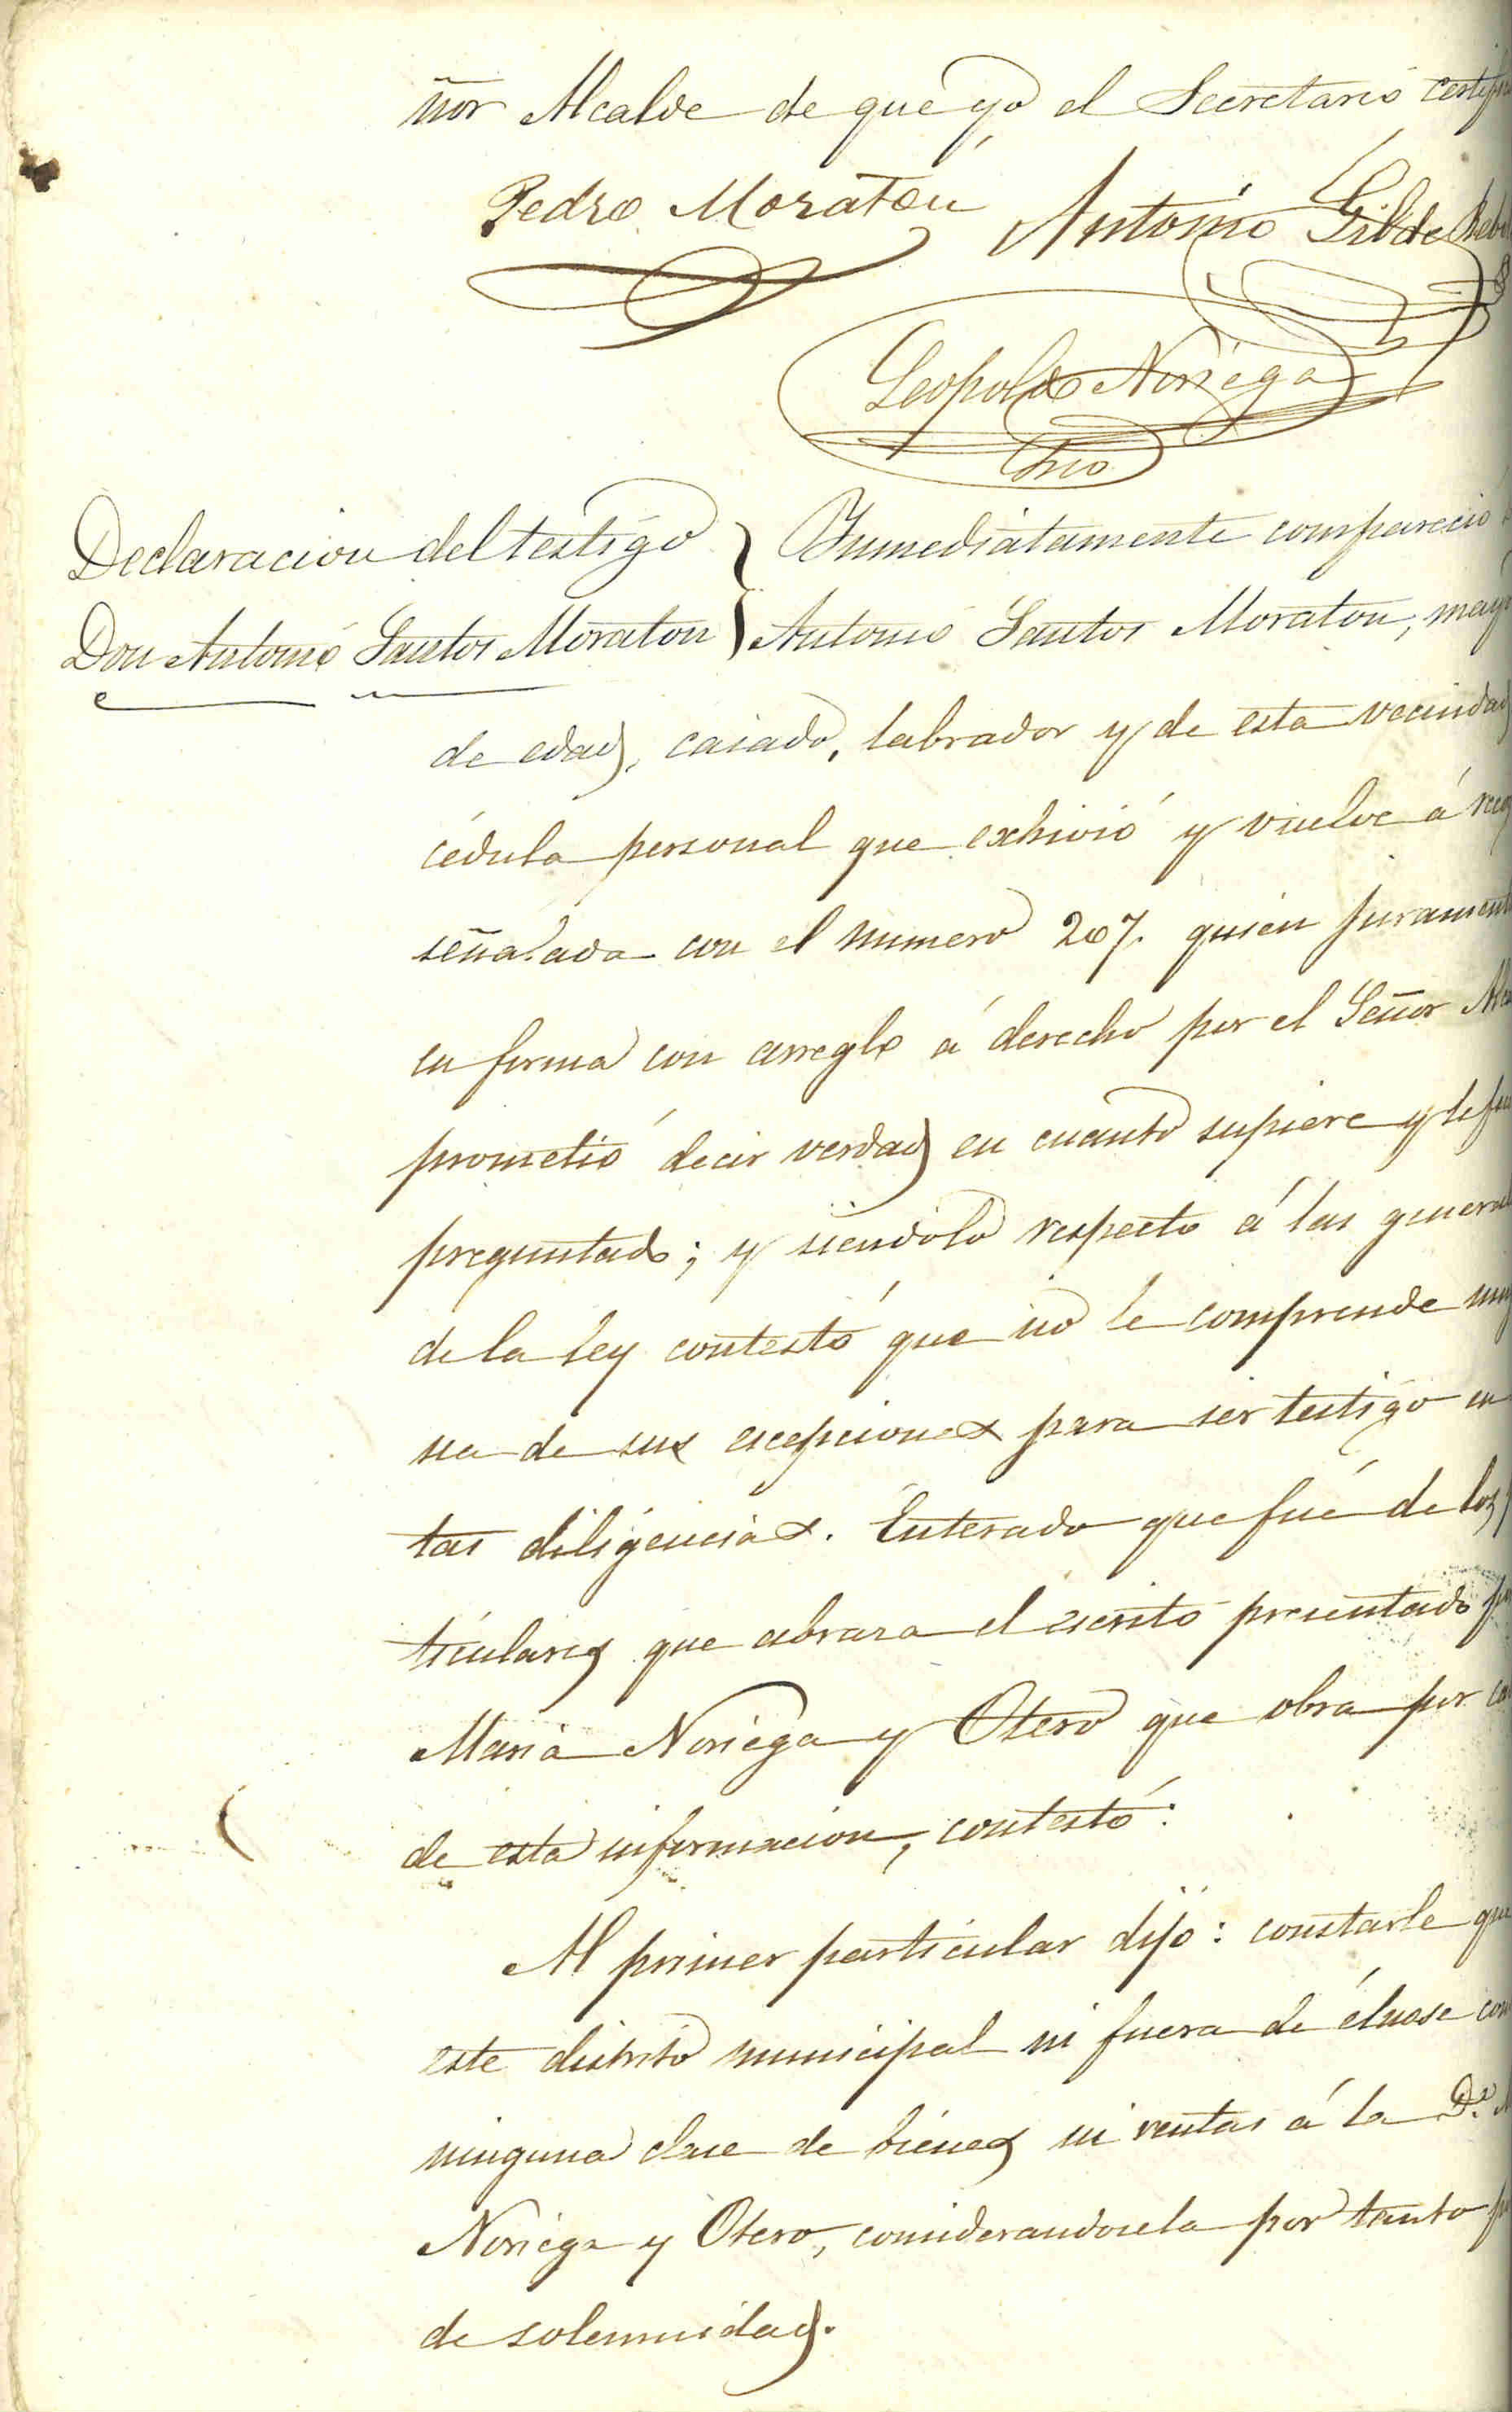 ñor Alcalde de que yo el Secretario certifi
Pedro Moratón Antonio Gil de Rebo
Leopoldo Noriega
Srio
Declaracion del testigo
Don Antonio Santos Moraton
Inmediatamente compareció
Antonio Santos Moraton, mayo
de edad, casado, labrador y de esta vecindad
cédula personal que exhivió y vuelve á reco
señalada con el numero 207. quien jurament
en forma con arreglo á derecho por el Señor Alca
prometió decir verdad en cuanto supiere y le fue
preguntado; y siendolo respecto á las general
de la ley contestó que no le comprende ning
na de sus escepciones para ser testigo en
tas diligencias. Enterado que fué de los
ticulares que abraza el escrito presentado po
Maria Noriega y Otero que obra por ca
de esta informacion, contestó:
Al primer particular dijo: constarle que
este distrito municipal ni fuera de él no se con
ninguna clase de bienes ni rentas á la D.ª M
Noriega y Otero, considerandosela por tanto po
de solemnidad.